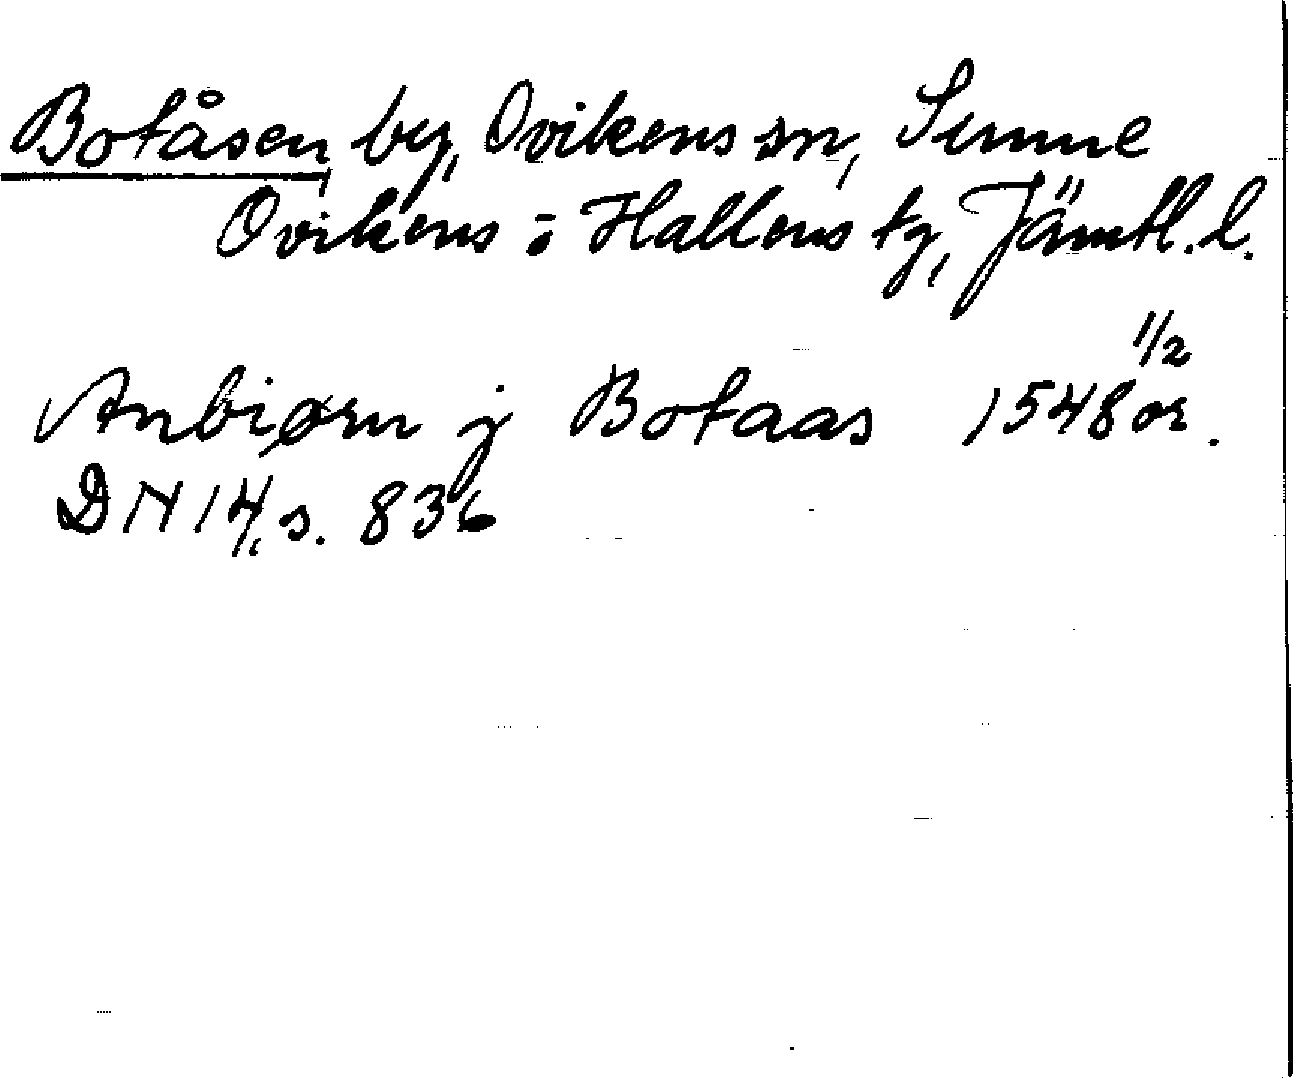 Botåsen, by, Ovikens sn, Sunne
Ovikens o Hallens tg, Jämtl. l.
Anbiørn j Botaas 1548 1/2 or.
DN 14, s. 836